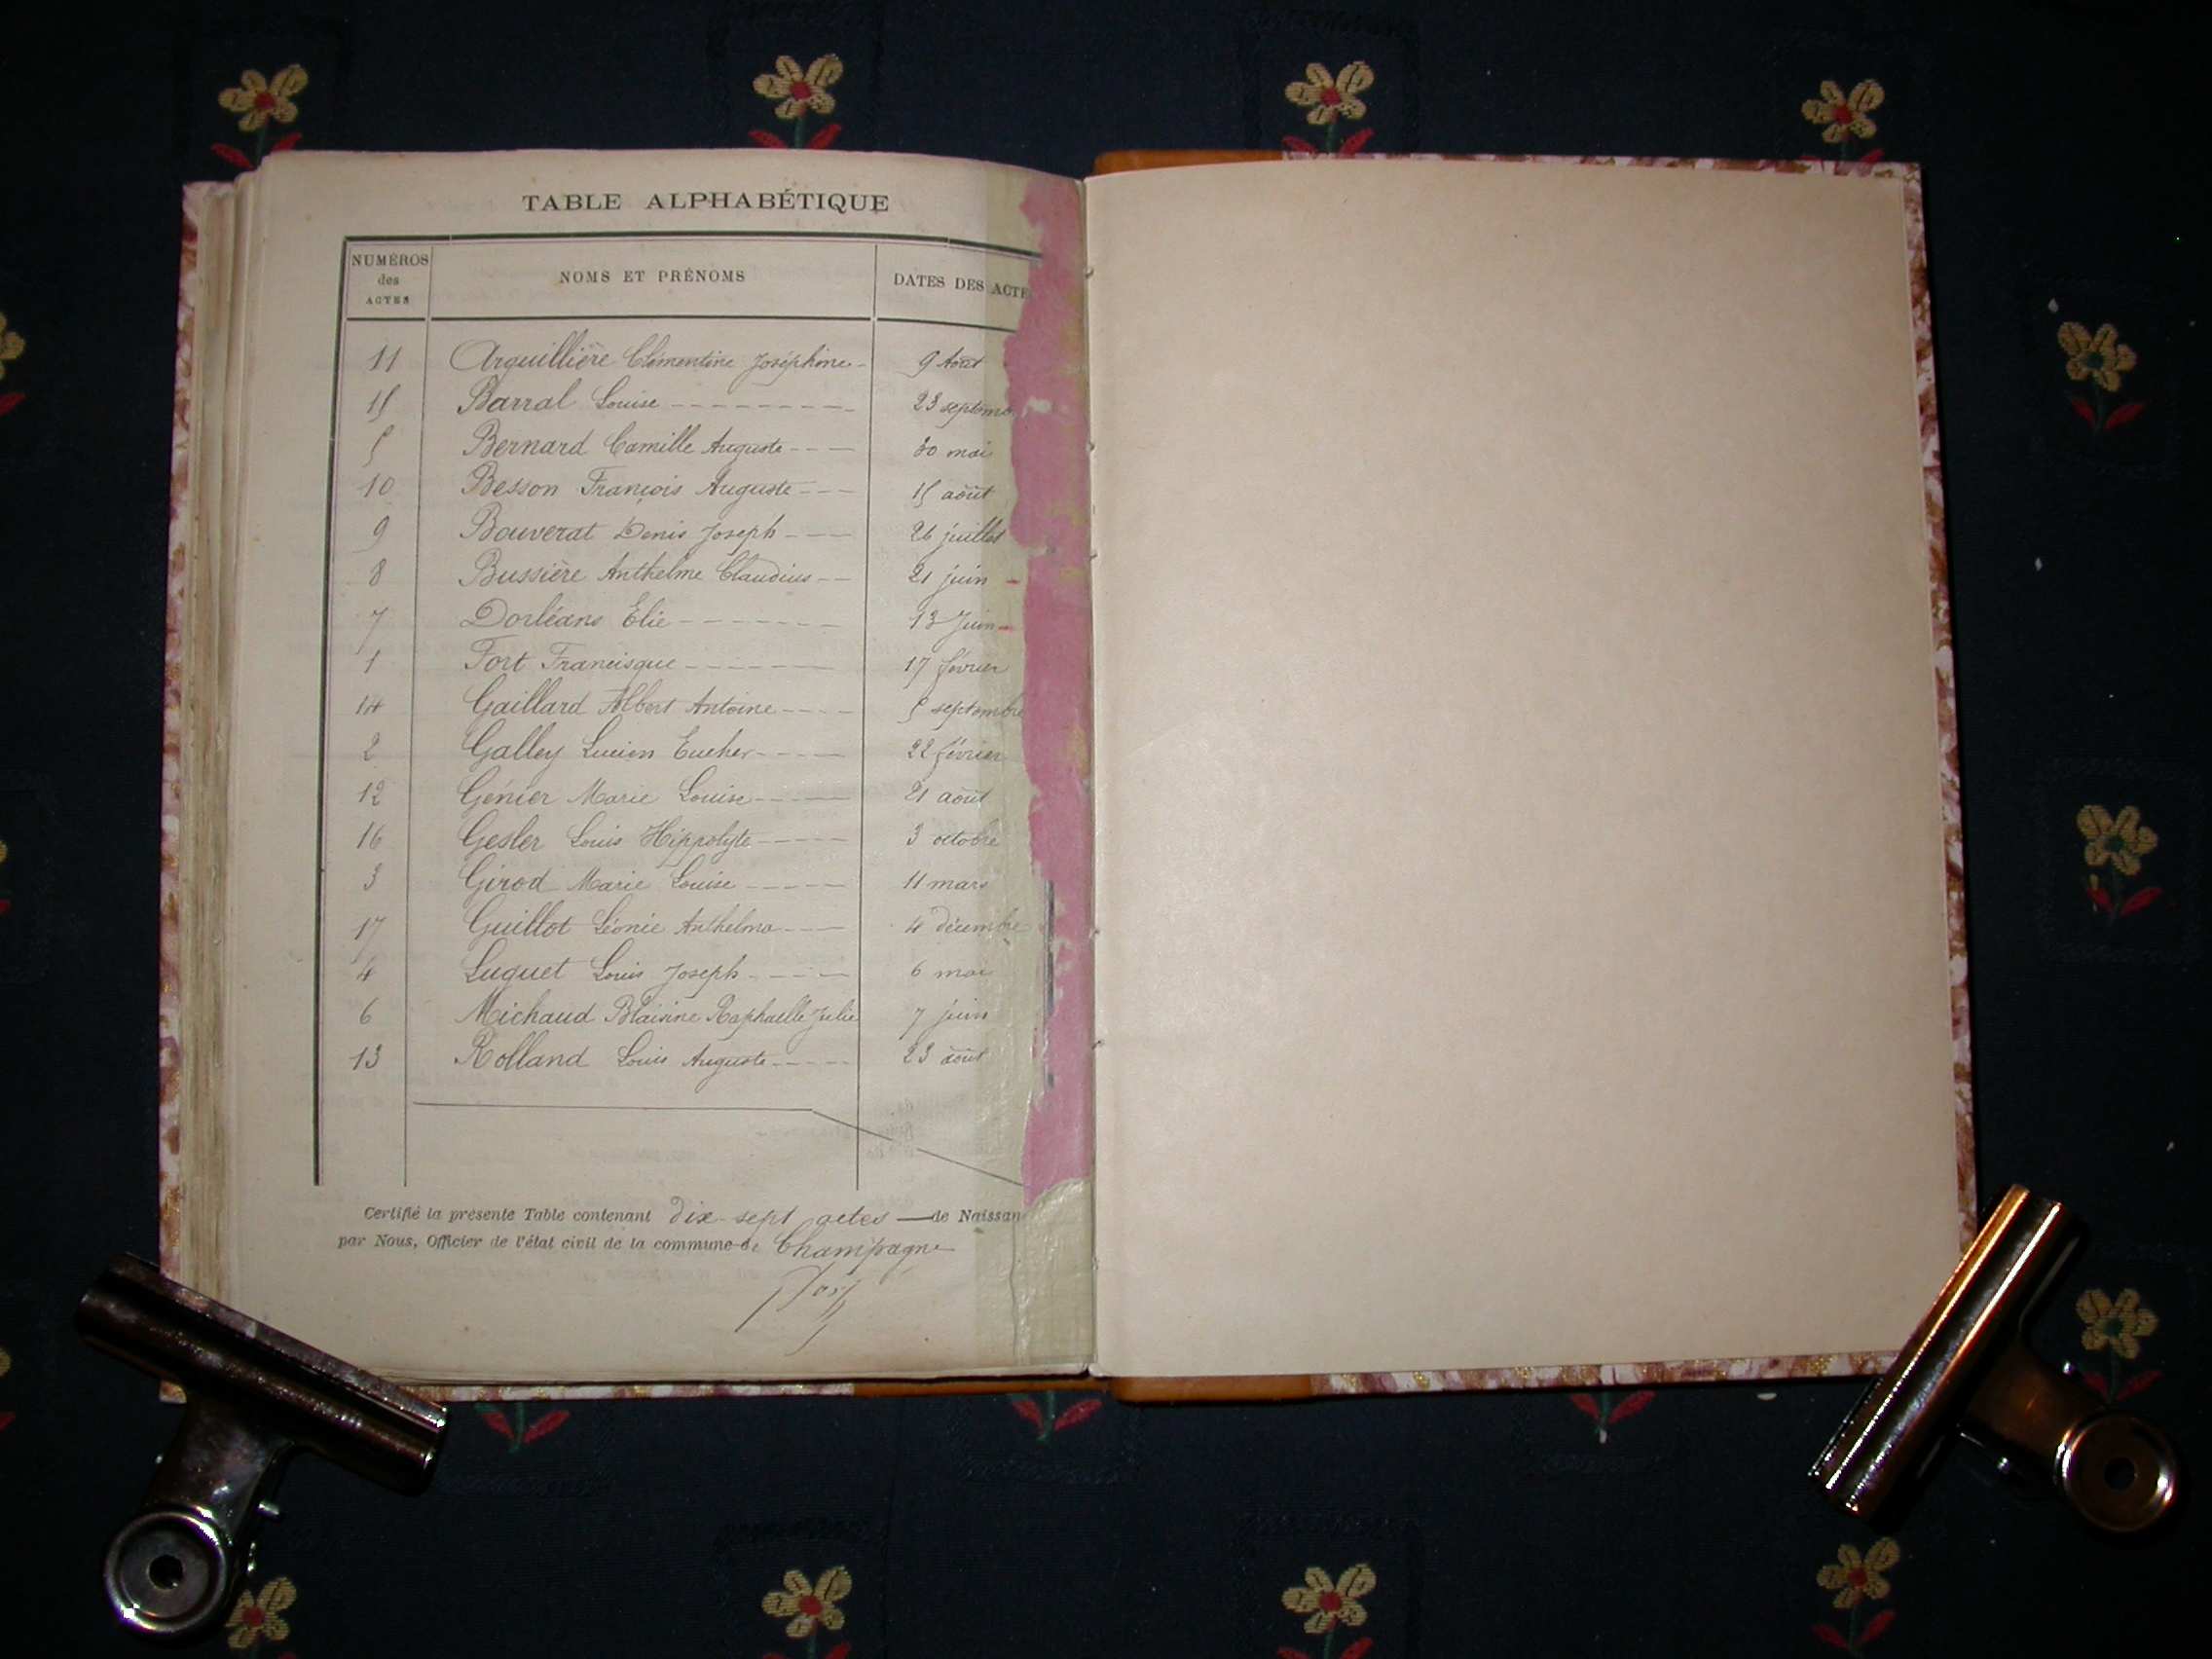 TABLE ALPHABÉTIQUE
NUMÉROS des ACTES NOMS ET PRÉNOMS DATES DES ACTE
11 Arquillière Clémentine Joséphine 9 Août
15 Barral Louise 23 septemb
5 Bernard Camille Auguste 30 mai
10 Besson François Auguste 15 août
9 Bouverat Denis Joseph 26 juillet
8 Bussière Anthelme Claudius 21 juin
7 Dorléans Élie 13 Juin
1 Fort Francisque 17 février
14 Gaillard Albert Antoine 5 septembre
2 Galley Lucien Eucher 22 février
12 Génier Marie Louise 21 août
16 Gesler Louis Hippolyte 3 octobre
3 Girod Marie Louise 11 mars
17 Guillot Léonie Anthelma 4 décembre
4 Luquet Louis Joseph 6 mai
6 Michaud Blaisine Raphaelle Julie 7 juin
13 Rolland Louis Auguste 23 août
Certifié la présente Table contenant dix-sept actes de Naissan
par Nous, Officier de l'état civil de la commune de Champagne